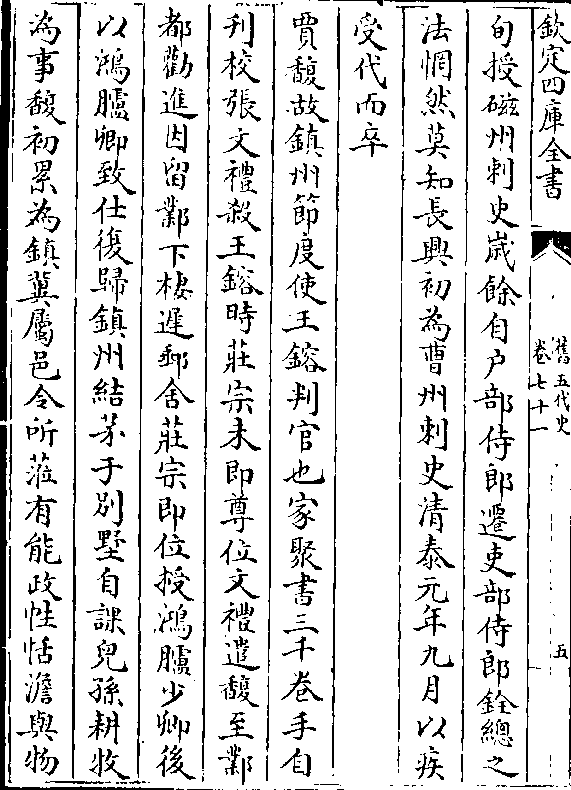 欽定四庫全書
舊五代史
卷七十一
五
旬授磁州刺史歲餘自户部侍郎遷吏部侍郎銓總之
法惘然莫知長興初為曹州刺史清泰元年九月以疾
受代而卒
賈馥故鎮州節度使王鎔判官也家聚書三千卷手自
刋校張文禮殺王鎔時莊宗未即尊位文禮遣馥至鄴
都勸進因留鄴下棲遲郵舍莊宗即位授鴻臚少卿後
以鴻臚卿致仕復歸鎮州結茅于別墅自課兒孫耕牧
為事馥初累為鎮冀屬邑令所蒞有能政性恬澹與物